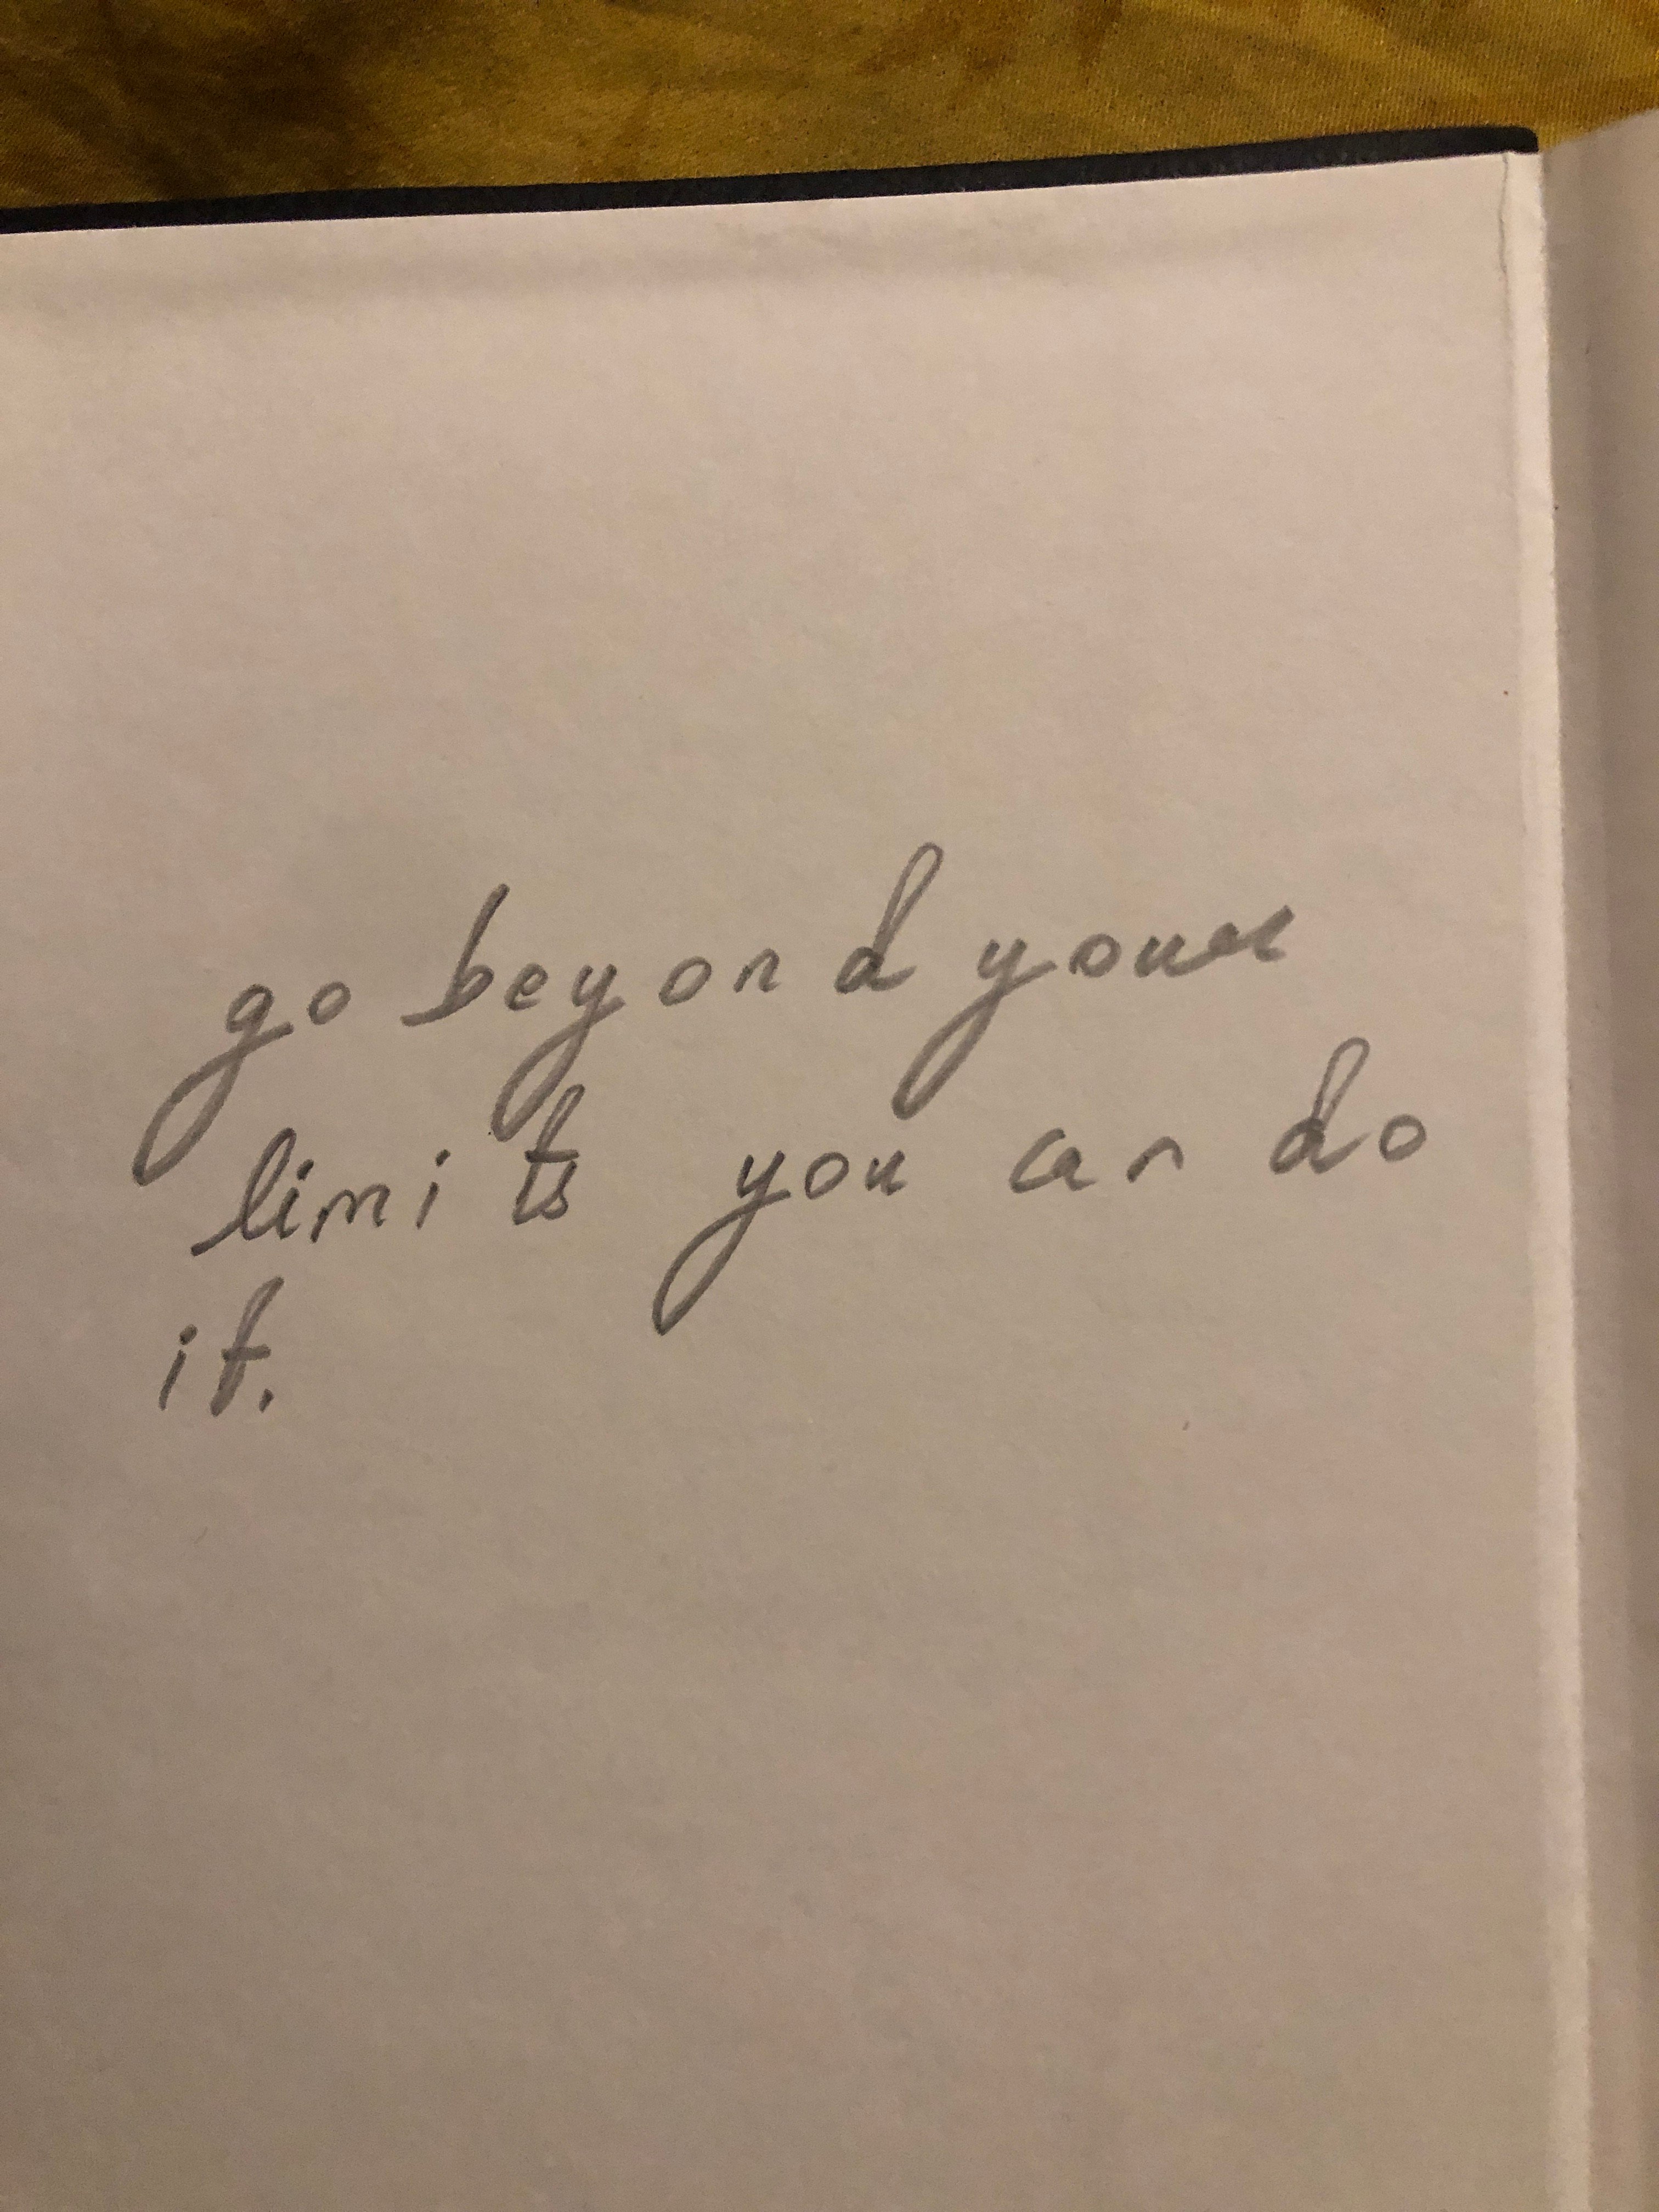 go beyond your
limits you can do
it.